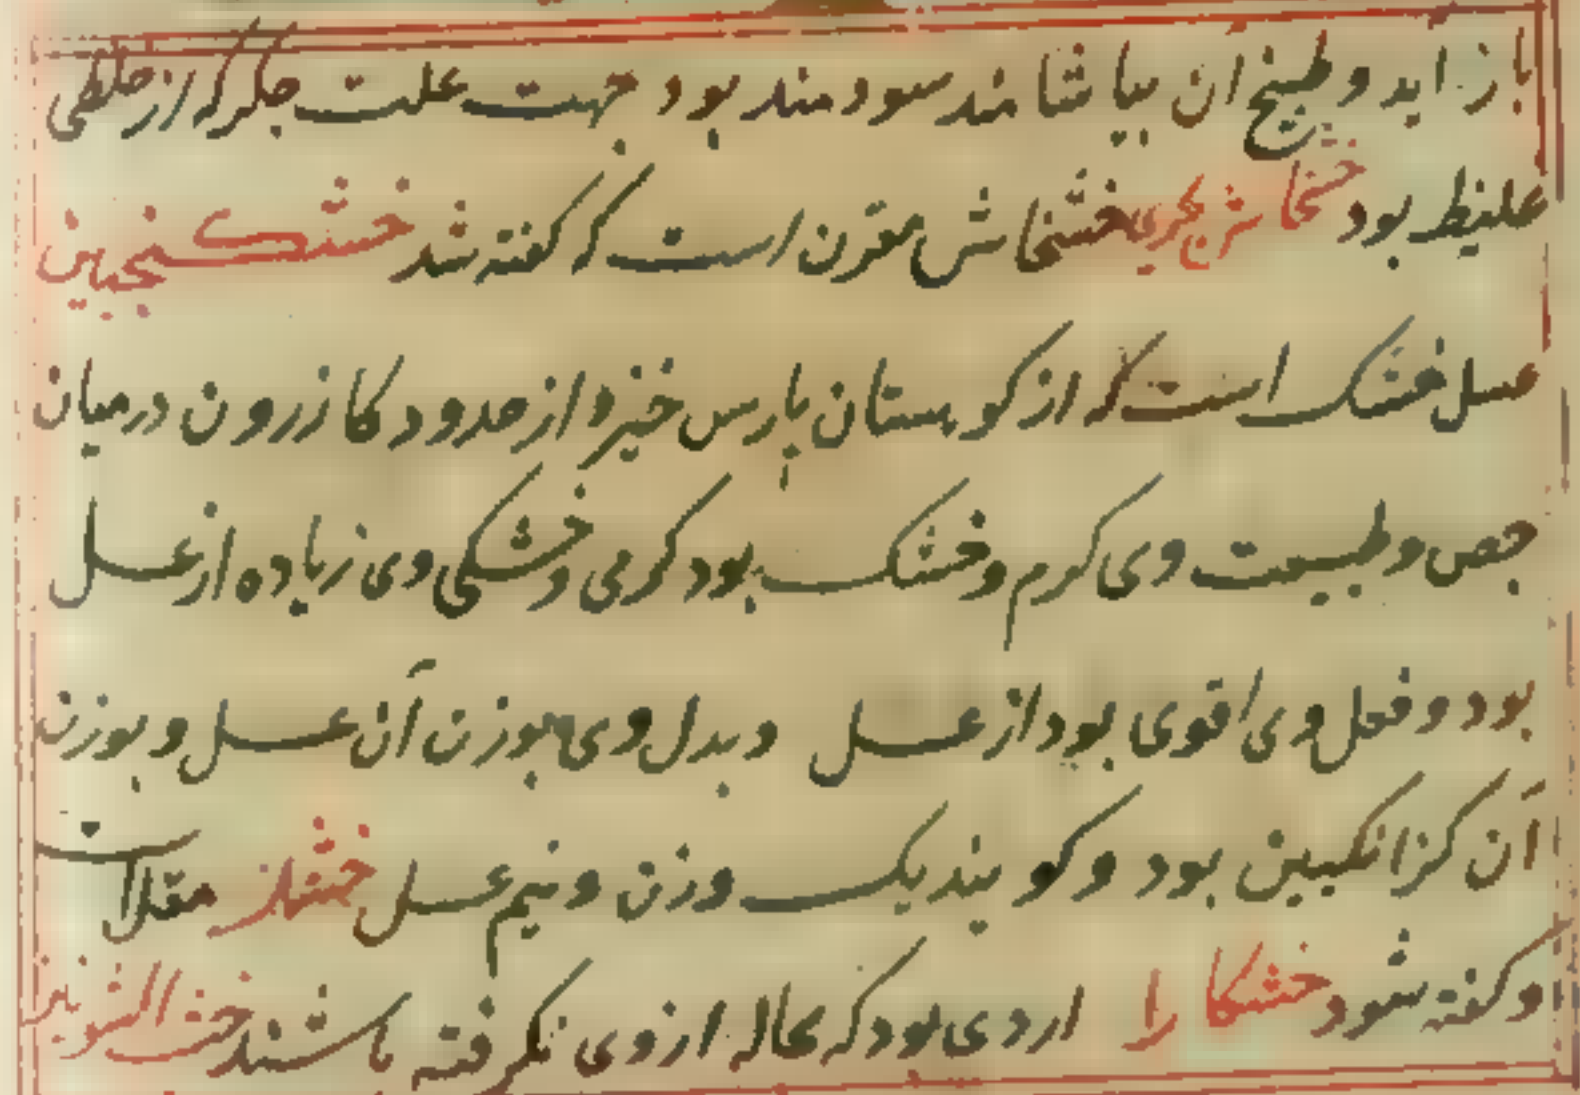 باز آید و طبیخ آن بیاشامند سودمند بود جهت علت جکر که از خلطی
غلیظ بود خشخاش بحری خشخاش مقرن است که کفته شد خشکنجبین
عسل خشک است که از کوهستان پارس خیزد از حدود کازرون درمیان
جص و طبیعت وی کرم و خشک بود کرمی و خشکی وی زیاده از عسل
بود و فعل وی اقوی بود از عسل و بدل وی بوزن آن عسل و بوزن
آن کزانکبین بود و کویند یک وزن و نیم عسل مقلاست
و کفته شود خشکار اردی بود که نخاله از وی نکرفته باشند